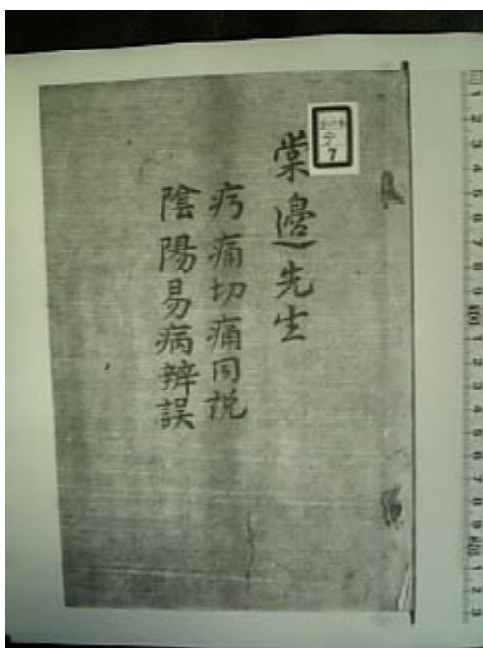 棠邊先生
疞痛切痛同説
陰陽易病辨誤
7